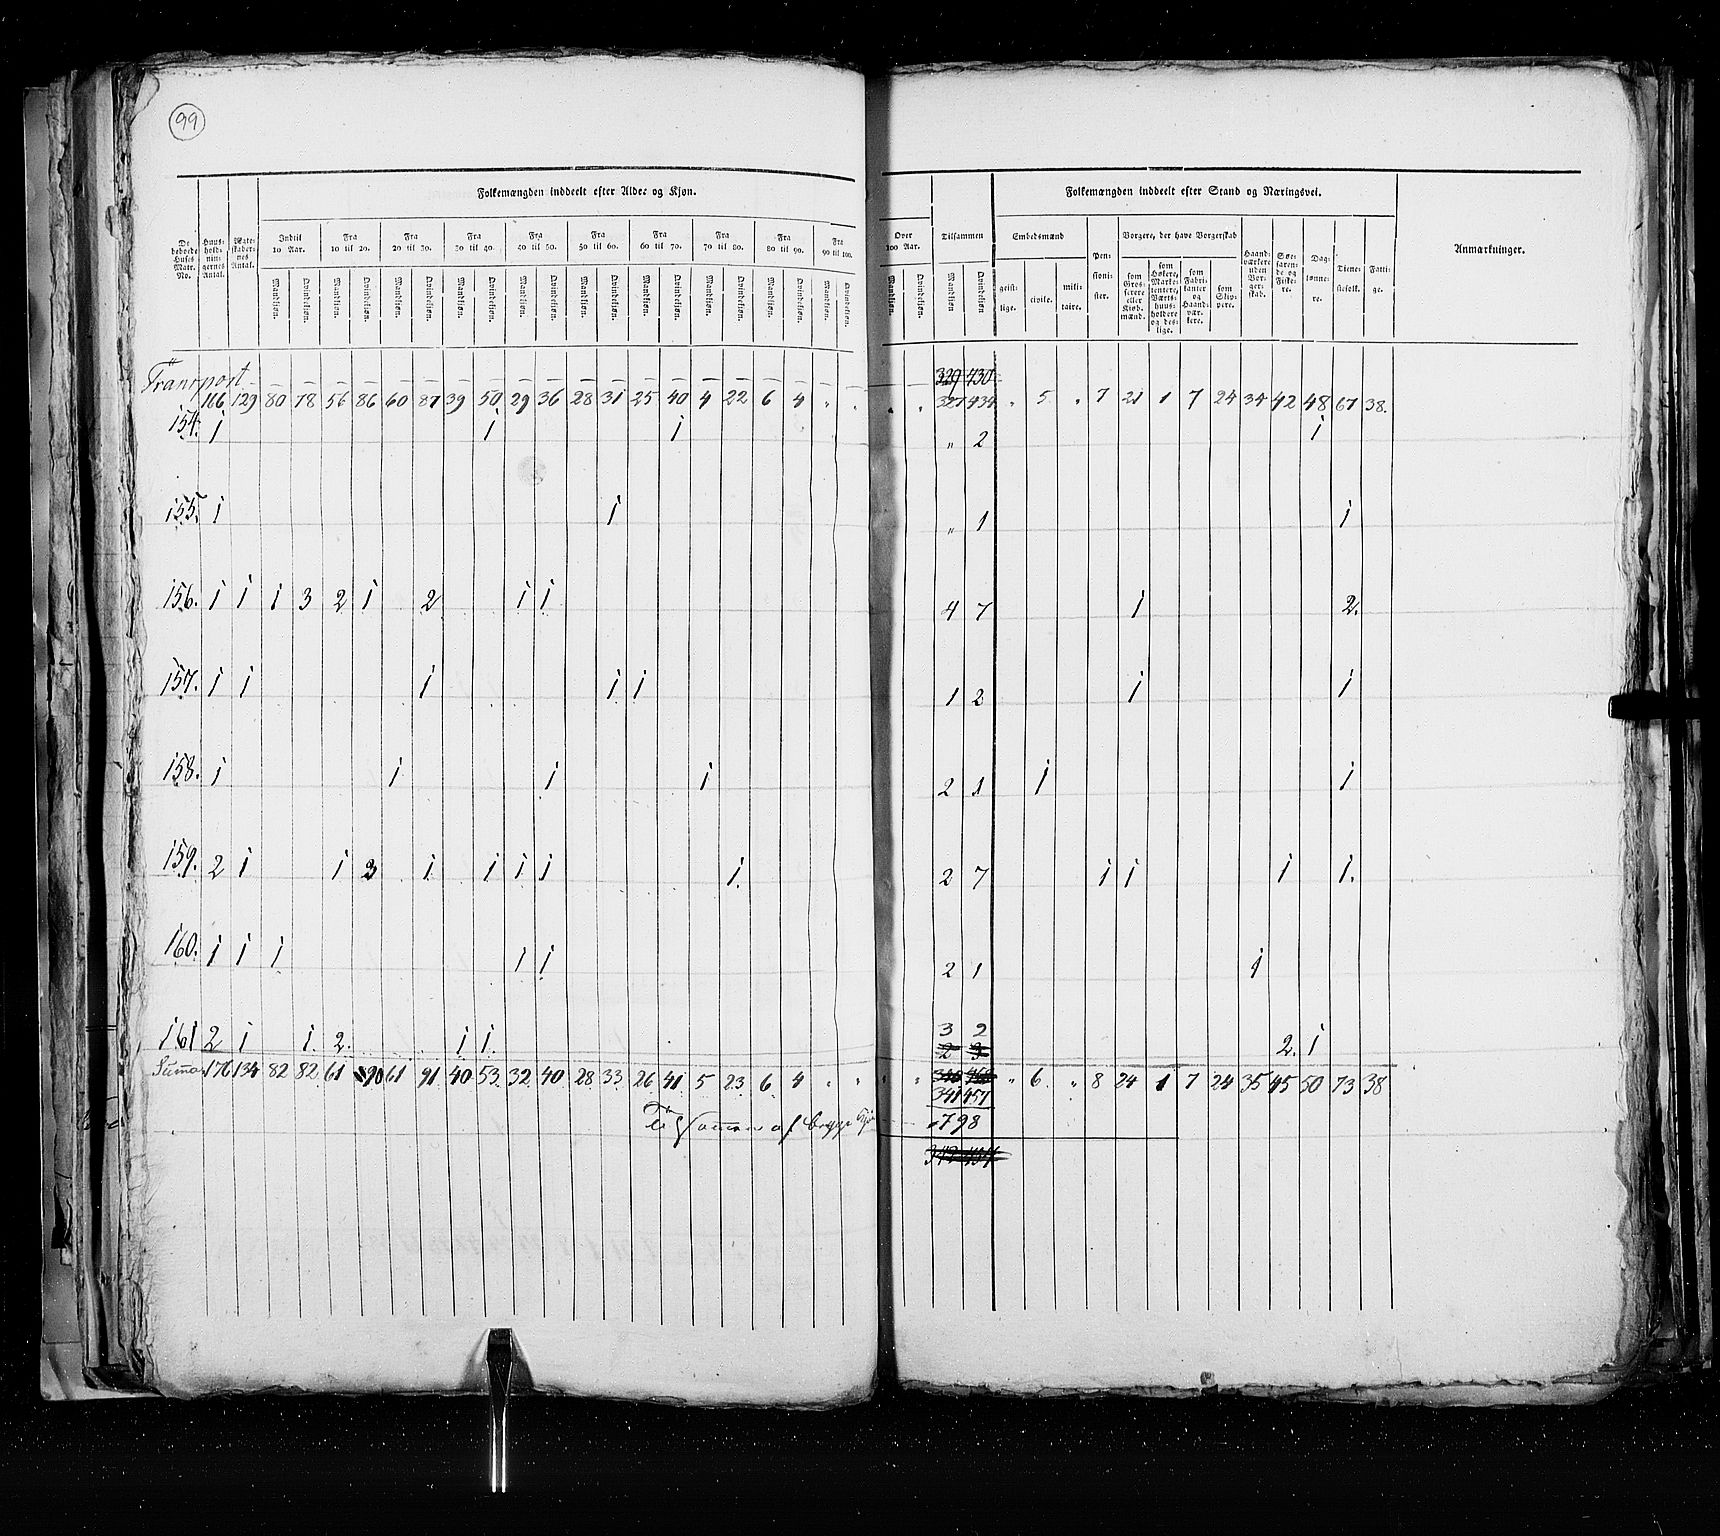 99
Folkemængden inddeelt efter Alder og Kjøn.
Folkemængden inddeelt efter Stand og Næringsvei.
De beboede Huses Matr. No.
Huusholdningernes Antal.
Ægteskabernes Antal.
Indtil 10 Aar.
Fra 10 til 20.
Fra 20 til 30.
Fra 30 til 40.
Fra 40 til 50.
Fra 50 til 60.
Fra 60 til 70.
Fra 70 til 80.
Fra 80 til 90.
Fra 90 til 100.
Over 100 Aar.
Tilsammen
Embedsmænd
geistlige.
civile.
militaire.
Pensionister.
Borgere, der have Borgerskab
som Grosserere eller Kiøbmænd.
som Høkere, Marketentere, Værtshuusholdere og deslige.
som Fabrikanter og Haandværkere.
som Skippere.
Haandværkere uden Borgerskab.
Søefarende og Fiskere.
Daglønnere.
Tienestefolk.
Fattige.
Anmærkninger.
Mandkiøn. Qvindekiøn. Mandkiøn. Qvindekiøn. Mandkiøn. Qvindekiøn. Mandkiøn. Qvindekiøn. Mandkiøn. Qvindekiøn. Mandkiøn. Qvindekiøn. Mandkiøn. Qvindekiøn. Mandkiøn. Qvindekiøn. Mandkiøn. Qvindekiøn. Mandkiøn. Qvindekiøn. Mandkiøn. Qvindekiøn. Mandkiøn Qvindekiøn.
Transport 329 430
166 129 80 78 56 86 60 87 39 50 29 36 28 31 25 40 4 22 6 4 " " " " 327 434 " 5 " 7 21 1 7 24 34 42 48 67 38.
154. 1 1 1 " 2 1
155. 1 1 " 1 1
156. 1 1 1 3 2 1 2 1 1 4 7 1 2.
157. 1 1 1 1 1 1 2 1 1
158. 1 1 1 1 2 1 1 1
159. 2 1 1 3 1 1 1 1 1. 2 7 1 1 1 1.
160. 1 1 1 1 1 2 1 1
161 2 1 1. 2. 1 1. 3 2 2. 1
2 3
Suma 176 134 82 82 61 90 61 91 40 53 32 40 28 33 26 41 5 23 6 4 " " " " " 6. " 8 24 1 7 24 35 45 50 73 38
341 457
Tilsammen af begge Kjøn 798